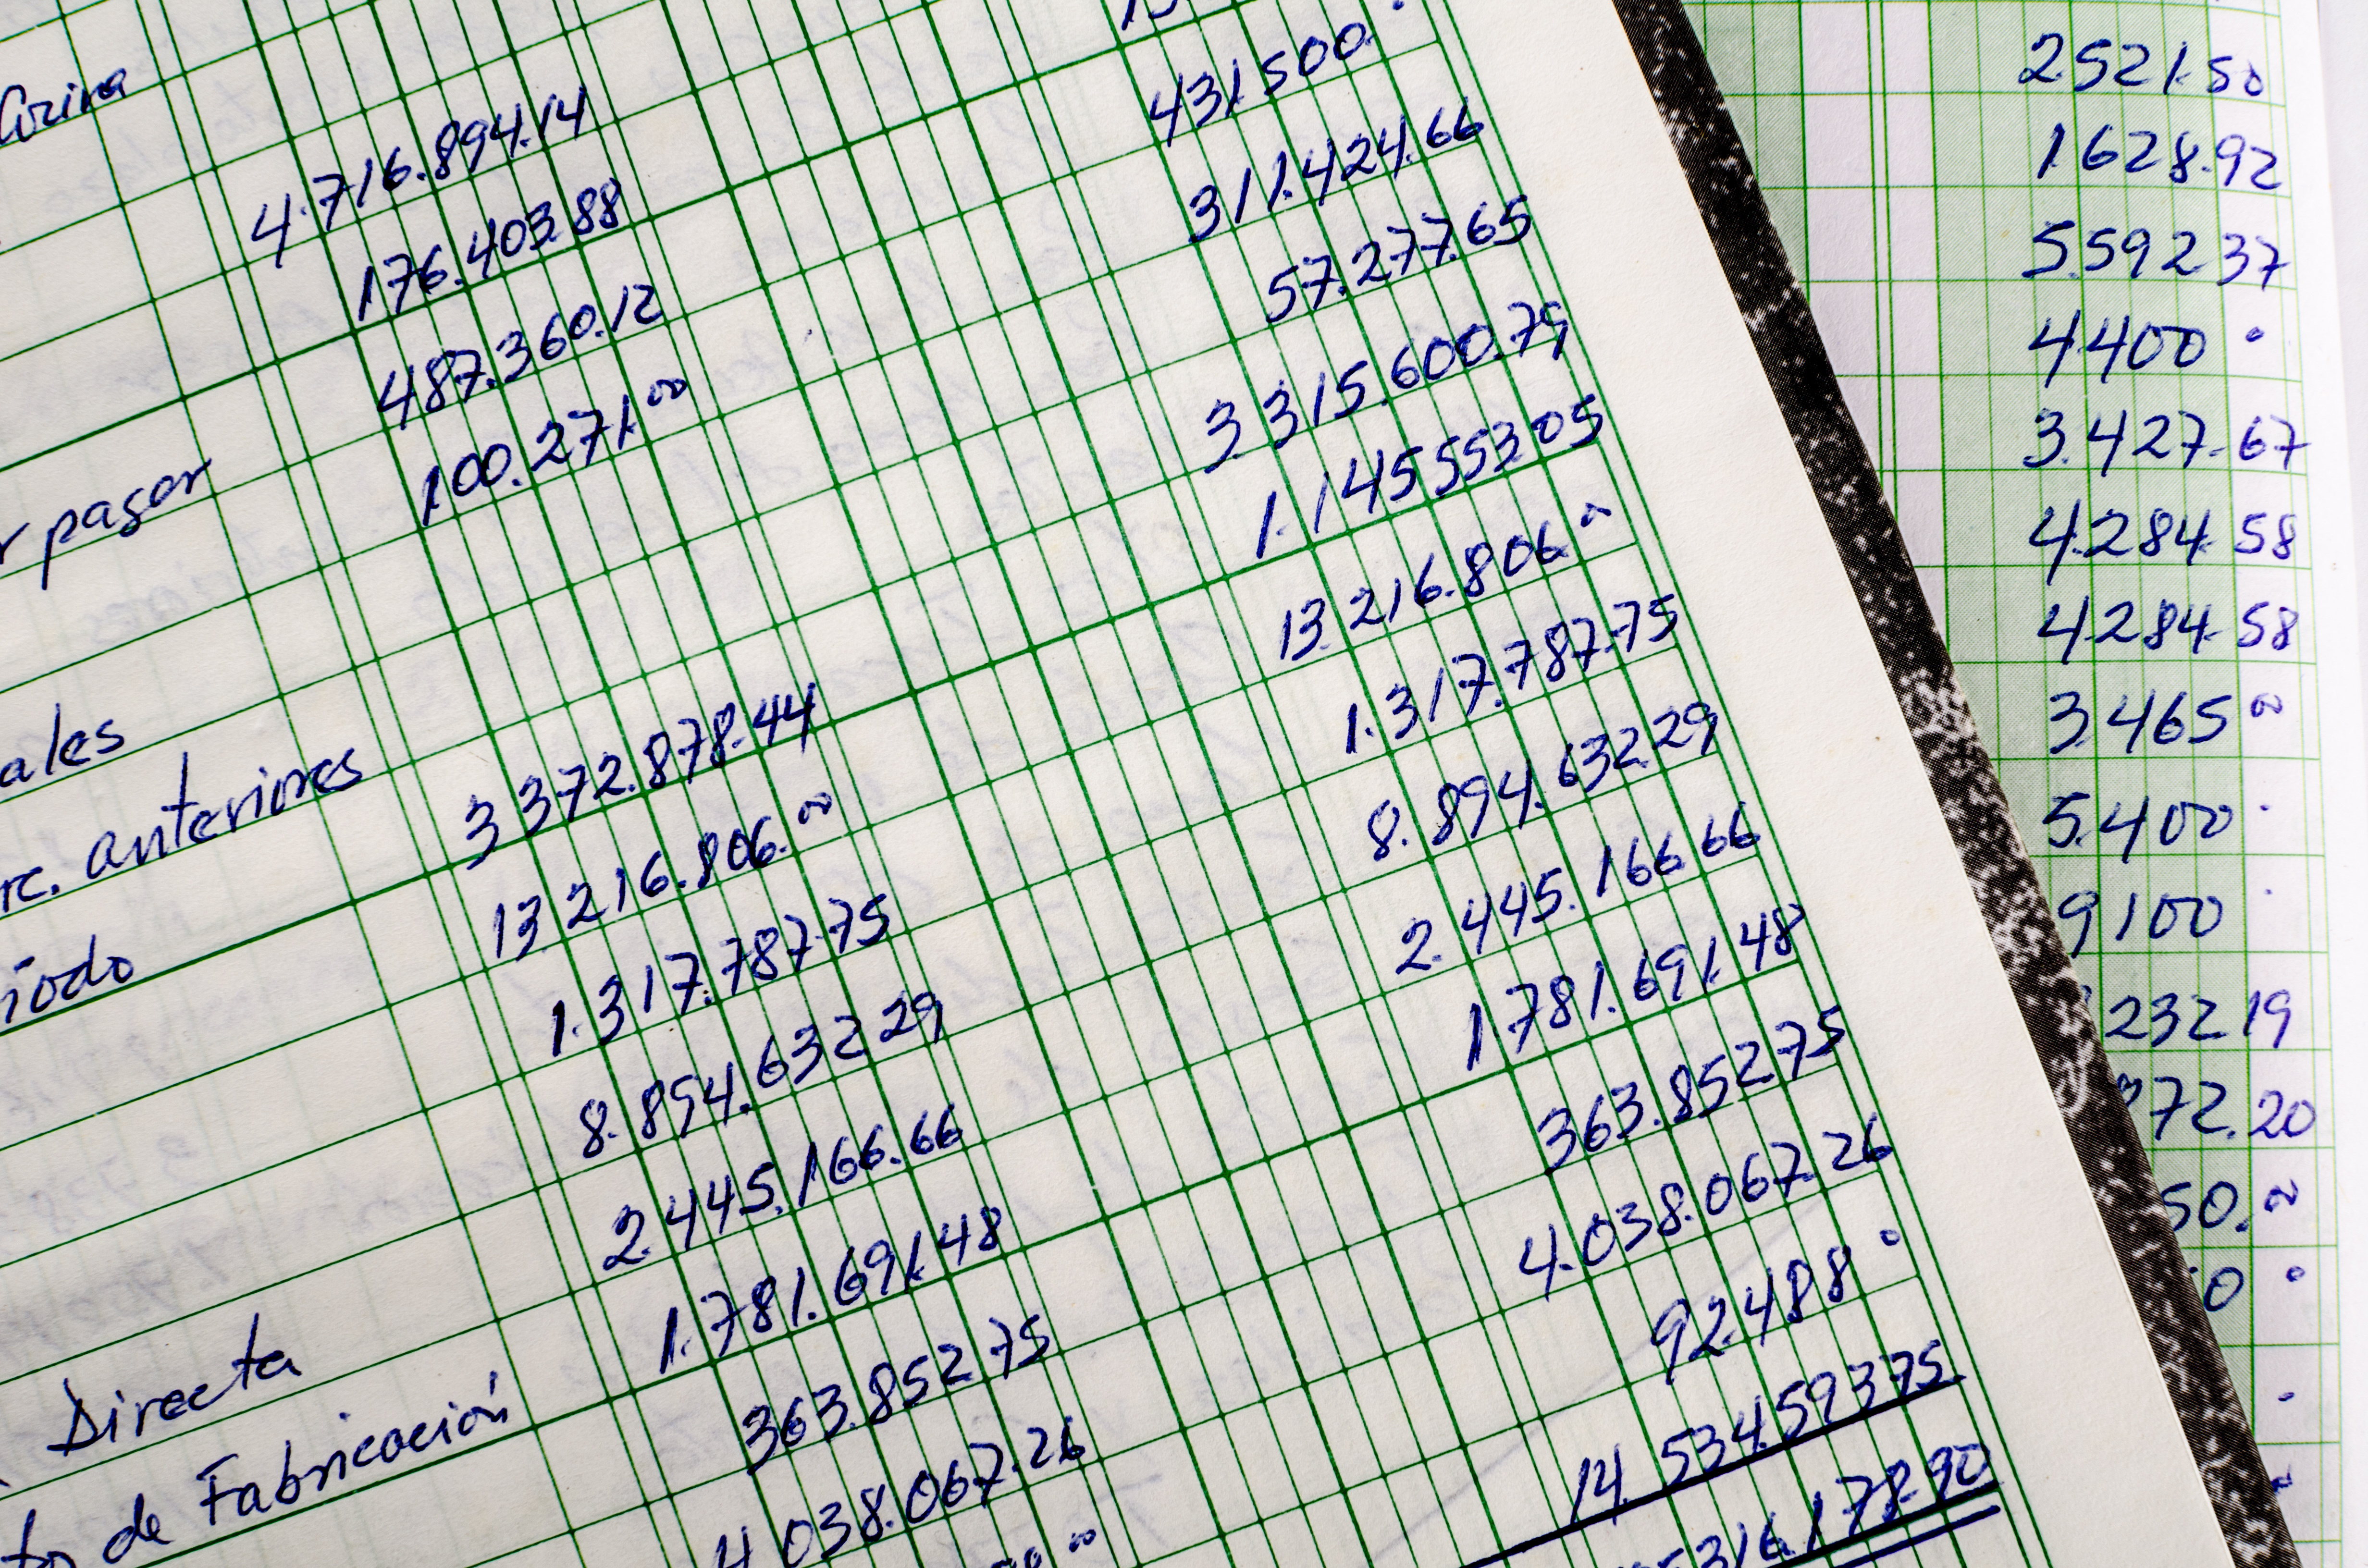 Corina
4.716.894.14
176.403.88
487.360.12
r pagar
100.271.00
ales
rc. anteriores
3 372.878.44
iodo
13 216.806.00
1.317.787.75
8.894.632 29
2.445.166.66
1.781.691.48
Directa
363.852 75
to de Fabricación
4 038.067.26
431.500.
311.424.66
57.277.65
3.315.600.79
1.145 553 05
13.216.806.00
1.317.787.75
8.894.632 29
2.445.166 66
1.781.691.48
363.852 75
4.038.067.26
92.488
14 534.593 75
316.178.90
2.521.50
1.628.92
5.592 37
4.400
3.427.67
4.284.58
4.284.58
3.465 00
5.400
9 100
232 19
72.20
50.00
0